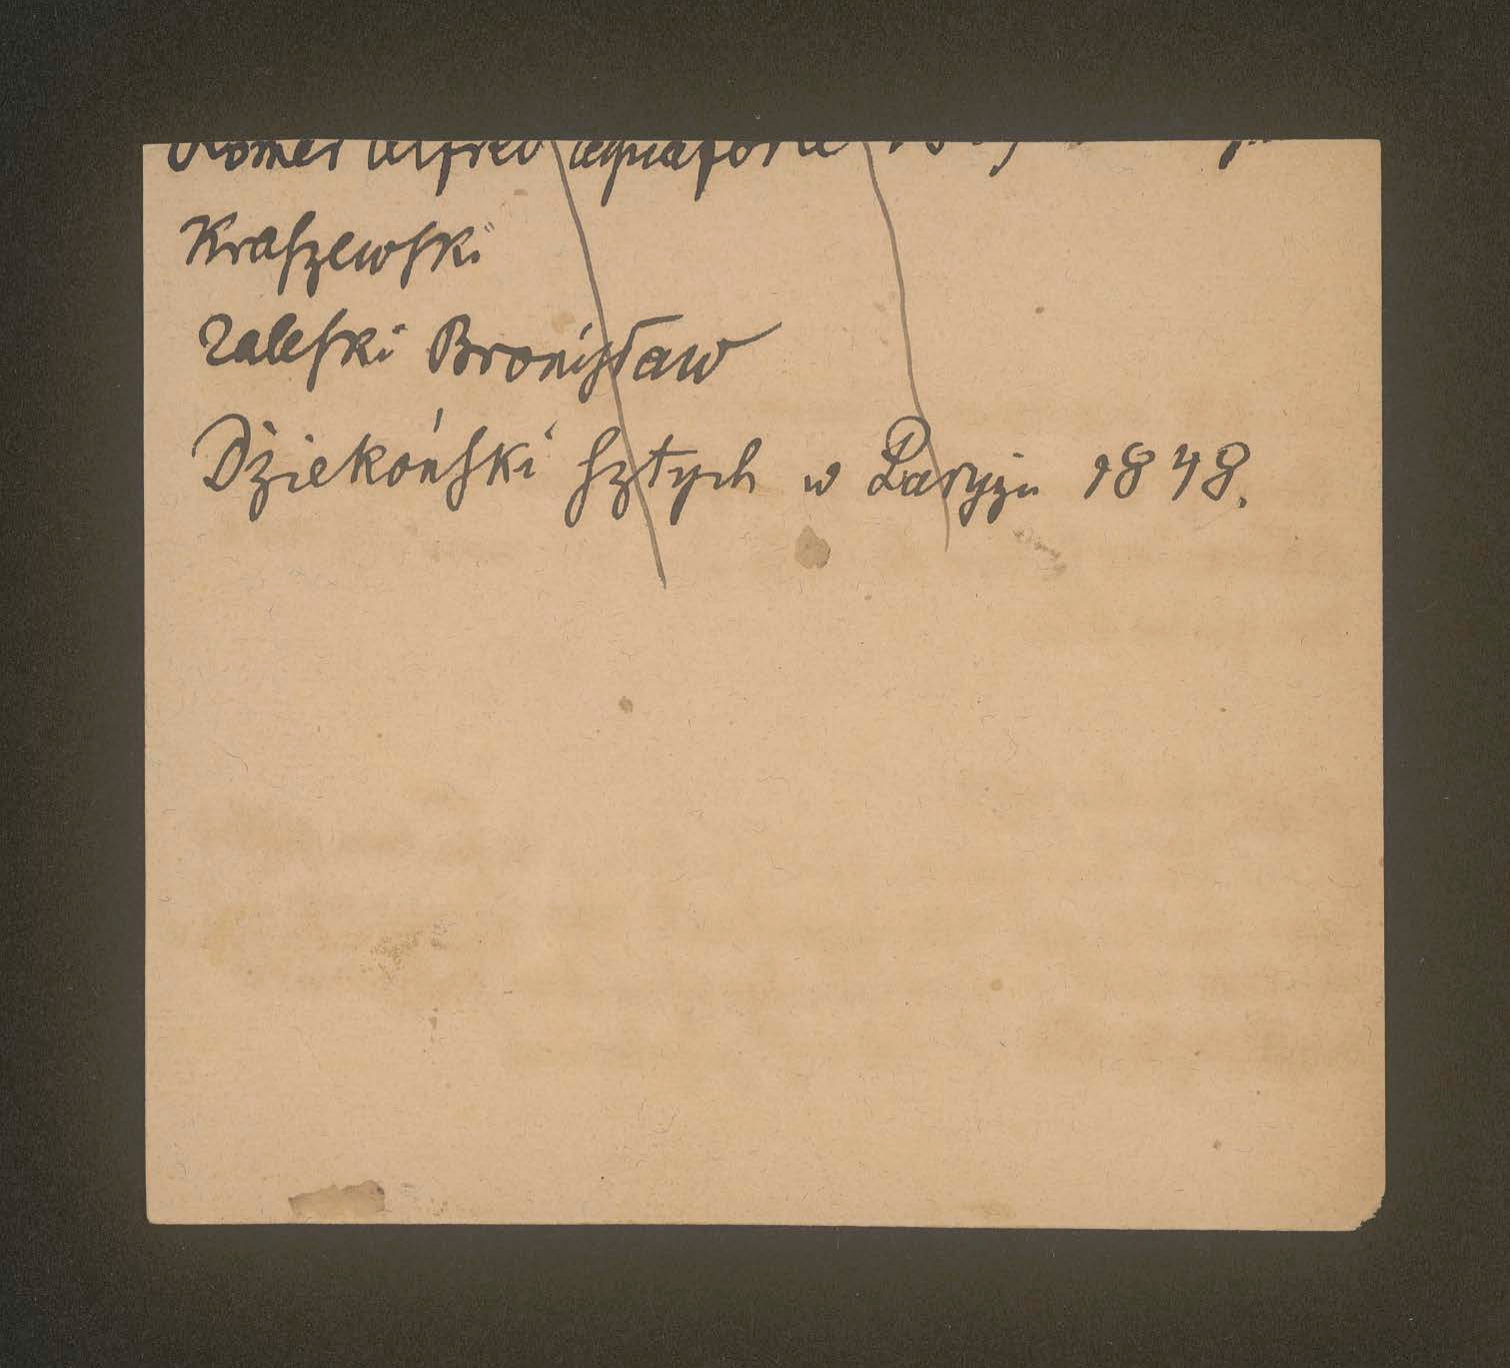 Römer Alfred aquaforte
Kraszewski
Zaleski Bronisław
Dziekoński sztych w Paryżu 1848.